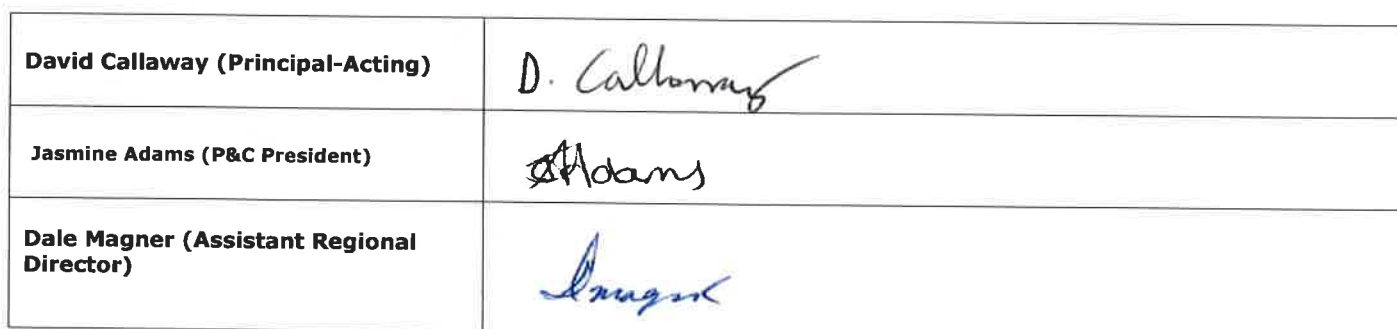 David Callaway (Principal-Acting)
D. Callaway
Jasmine Adams (P&C President)
JAdams
Dale Magner (Assistant Regional
Director)